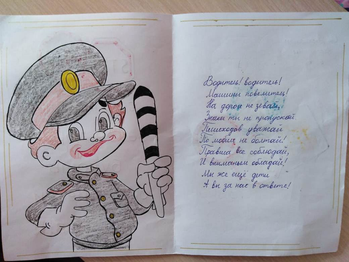 Водитель! водитель!
Машины повелитель!
На дороге не зевай,
Знаки ты не пропускай
Пешеходов уважай
По мобиле не болтай!
Правила все соблюдай,
И вниманием обладай!
Мы же ещё дети
А вы за нас в ответе!